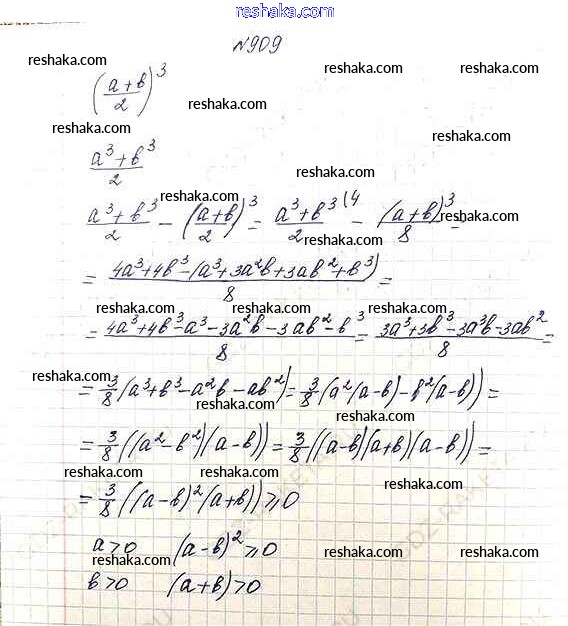 reshaka.com
№909
reshaka.com reshaka.com reshaka.com
((a+b)/2)^3 reshaka.com reshaka.com
reshaka.com reshaka.com
(a^3+b^3)/2 reshaka.com
reshaka.com
(a^3+b^3)/2 - ((a+b)/2)^3 = (a^3+b^3)/2 (4 - (a+b)^3/8 =
reshaka.com reshaka.com
= (4a^3+4b^3-(a^3+3a^2b+3ab^2+b^3))/8 =
reshaka.com reshaka.com
= (4a^3+4b^3-a^3-3a^2b-3ab^2-b^3)/8 = (3a^3+3b^3-3a^3b-3ab^2)/8 =
reshaka.com reshaka.com
= 3/8 (a^3+b^3-a^2b-ab^2) = 3/8 (a^2(a-b)-b^2(a-b)) =
reshaka.com reshaka.com
= 3/8 ((a^2-b^2)(a-b)) = 3/8 ((a-b)(a+b)(a-b)) =
reshaka.com reshaka.com reshaka.com
= 3/8 ((a-b)^2(a+b)) ⩾ 0
a>0 (a-b)^2 ⩾ 0
reshaka.com reshaka.com reshaka.com
b>0 (a+b)>0